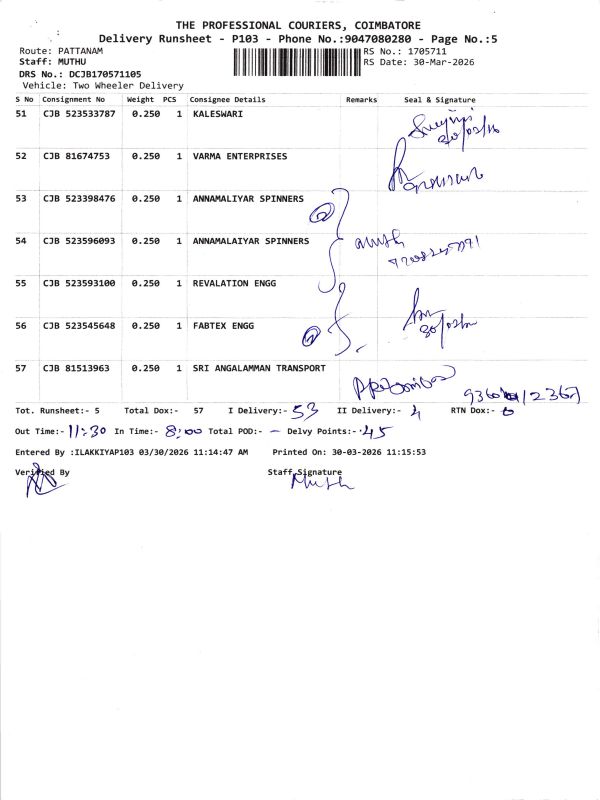 THE PROFESSIONAL COURIERS, COIMBATORE
Delivery Runsheet - P103 - Phone No.:9047080280 - Page No.:5
Route: PATTANAM RS No.: 1705711
Staff: MUTHU RS Date: 30-Mar-2026
DRS No.: DCJB170571105
Vehicle: Two Wheeler Delivery
S No Consignment No Weight PCS Consignee Details Remarks Seal & Signature
51 CJB 523533787 0.250 1 KALESWARI
52 CJB 81674753 0.250 1 VARMA ENTERPRISES
53 CJB 523398476 0.250 1 ANNAMALIYAR SPINNERS
54 CJB 523596093 0.250 1 ANNAMALAIYAR SPINNERS
55 CJB 523593100 0.250 1 REVALATION ENGG
56 CJB 523545648 0.250 1 FABTEX ENGG
57 CJB 81513963 0.250 1 SRI ANGALAMMAN TRANSPORT
Tot. Runsheet:- 5 Total Dox:- 57 I Delivery:- 53 II Delivery:- 4 RTN Dox:- 0
Out Time:- 11:30 In Time:- 8:00 Total POD:- - Delvy Points:- 45
Entered By :ILAKKIYAP103 03/30/2026 11:14:47 AM Printed On: 30-03-2026 11:15:53
Verified By Staff Signature
Muth